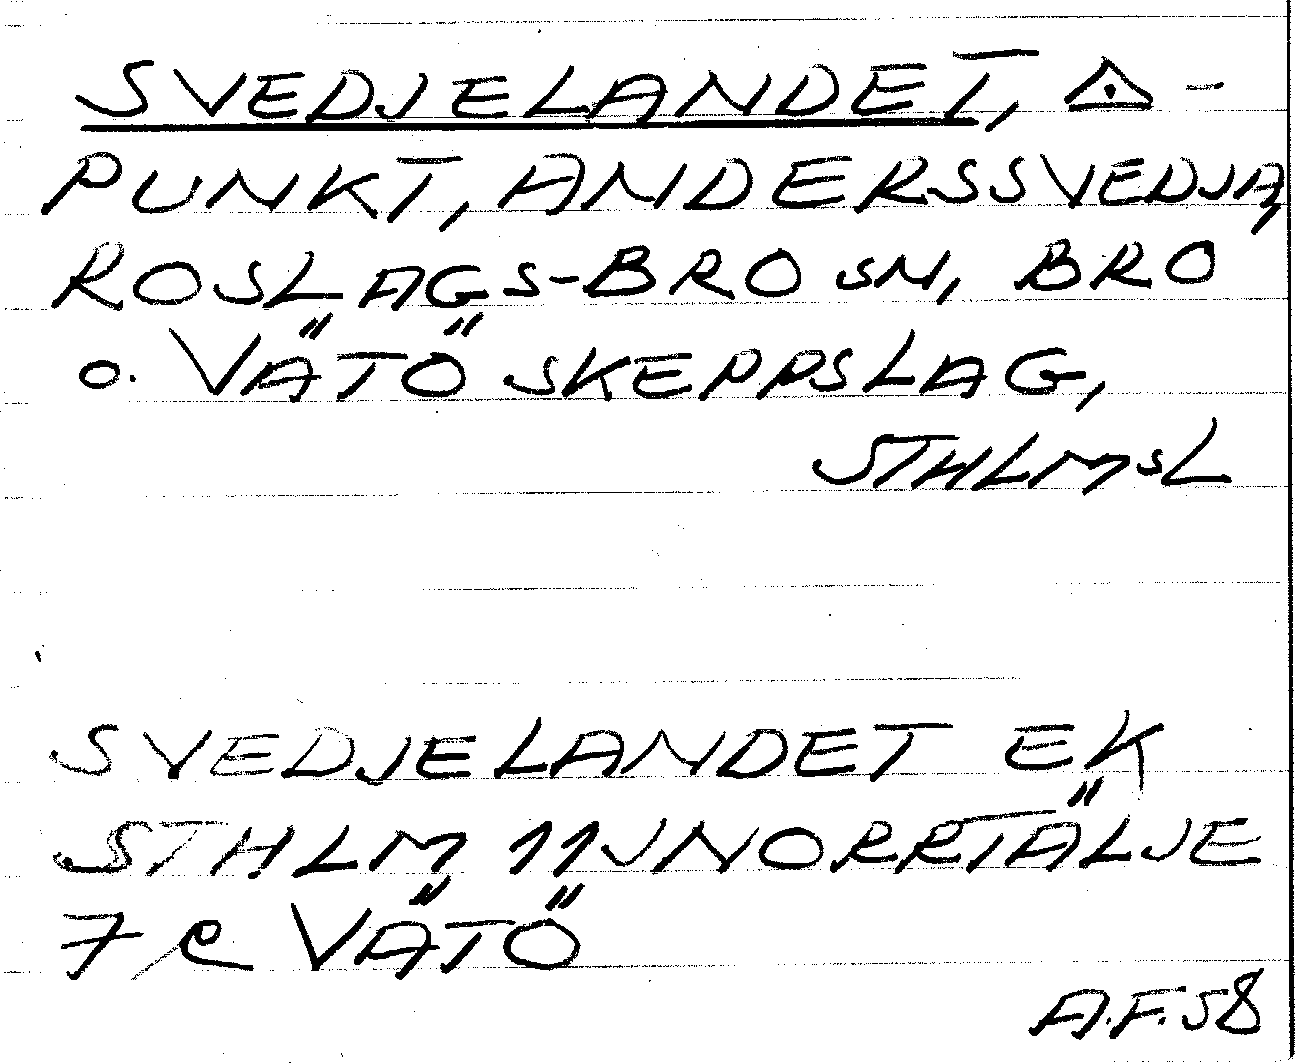 SVEDJELANDET, △-
PUNKT, ANDERSSVEDJA,
ROSLAGS-BRO SN, BRO
O. VÄTÖ SKEPPSLAG,
STHLMSL
SVEDJELANDET EK
STHLM 11J NORRTÄLJE
7 e VÄTÖ
A.F. 58